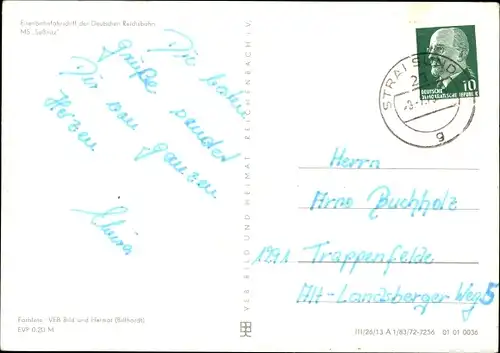 Eisenbahnfährschiff der Deutschen Reichsbahn
MS „Saßnitz"
Die
Grüße sendet
Dir von ganzen
Herzen
VEB BILD UND HEIMAT REICHENBACH I. V.
STRALSUND
DEUTSCHE
DEMOKRATISCHE REPUBLIK
10
g
Herrn
Arno Buchholz
1291 Trappenfelde
Alt-Landsberger Weg 5
Farbfoto: VEB Bild und Heimat
EVP 0.20 M
III/26/13 A 1/83/72-7256 01 01 0036